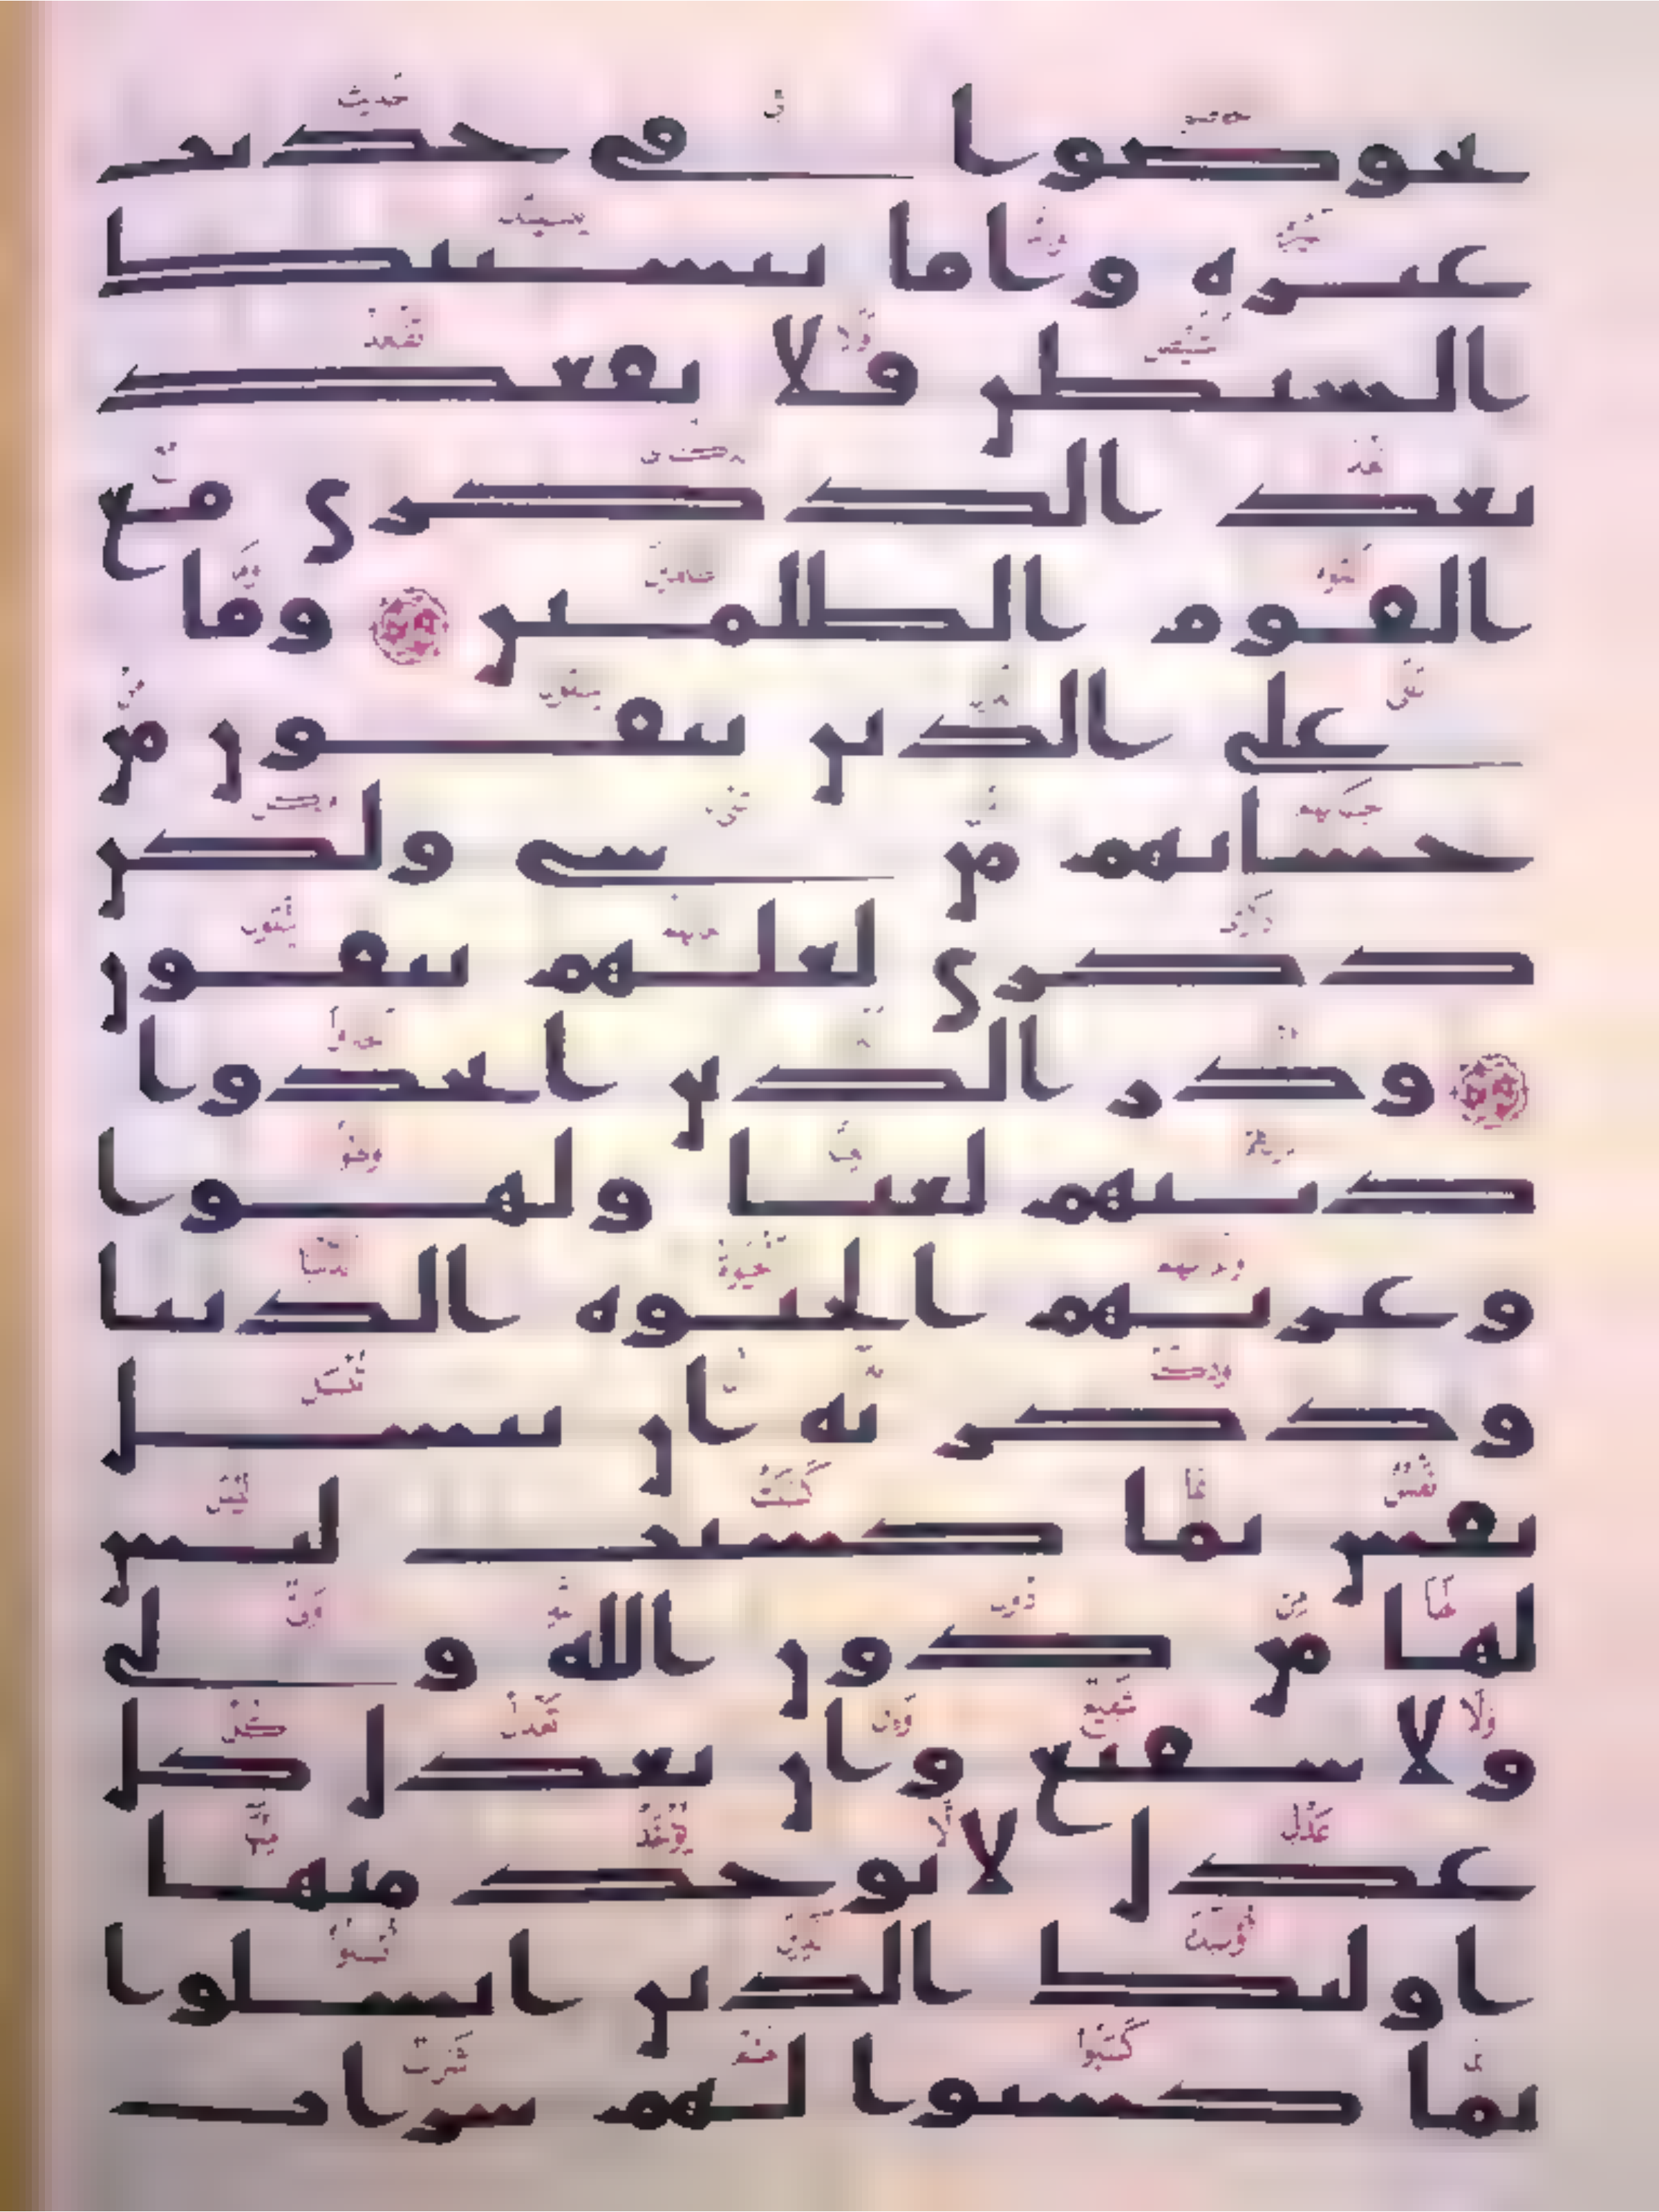 يخوضوا في حديث
غيره واما ينسينك
الشيطن فلا تقعد
بعد الذكرى مع
القوم الظلمين وما
على الذين يتقون من
حسابهم من شى ولكن
ذكرى لعلهم يتقون
وذر الذين اتخذوا
دينهم لعبا ولهوا
وغرتهم الحيوة الدنيا
وذكر به ان تبسل
نفس بما كسبت ليس
لها من دون الله ولى
ولا شفيع وان تعدل كل
عدل لا يوخذ منها
اوليك الذين ابسلوا
بما كسبوا لهم شراب